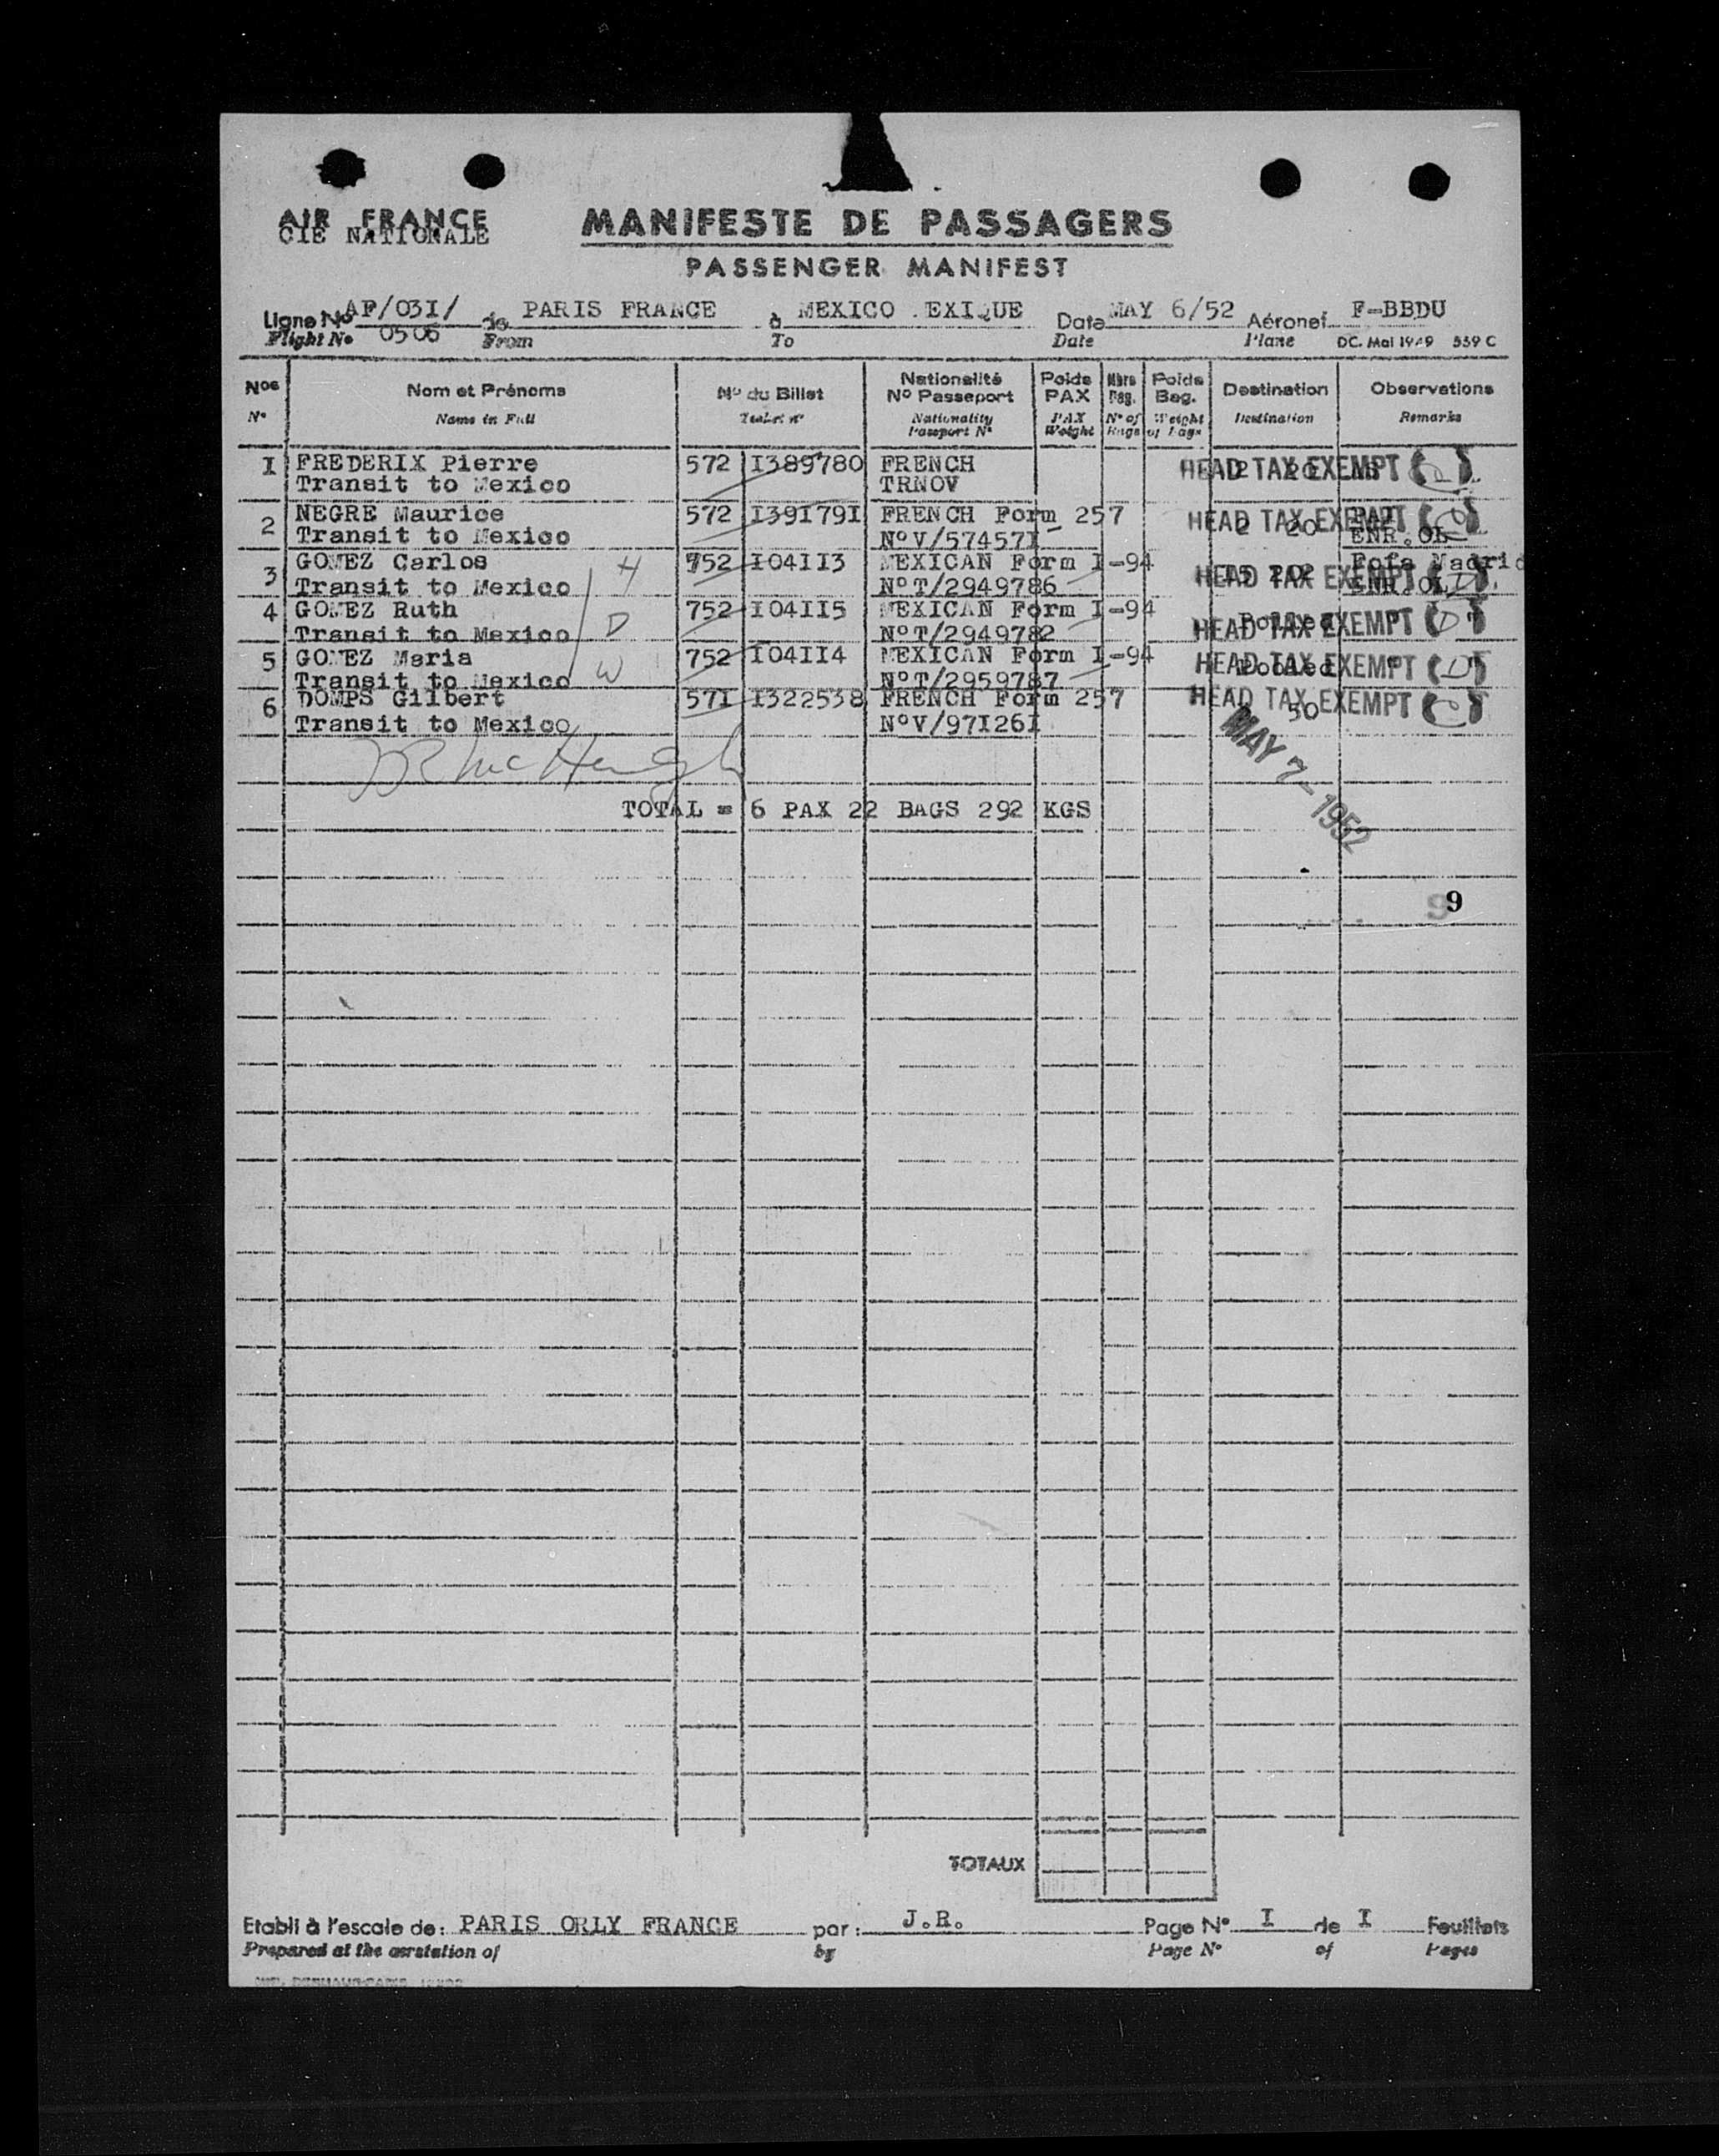 AIR FRANCE
CIE NATIONALE
MANIFESTE DE PASSAGERS
PASSENGER MANIFEST
Ligne No AF/03I/ de PARIS FRANCE à MEXICO EXIQUE Date MAY 6/52 Aéronef F-BBDU
Flight No 0506 From To Date Plane DC. Mai 1949 559 C
Nos Nom et Prénoms No du Billet Nationalité No Passeport Poids PAX Nbre Bag. Poids Bag. Destination Observations
No Name in Full Ticket no Nationality Passport No PAX Weight No of Bags Weight of Bags Destination Remarks
I FREDERIX Pierre 572 I389780 FRENCH HEAD TAX EXEMPT
Transit to Mexico TRNOV
2 NEGRE Maurice 572 I39I79I FRENCH Form 257 HEAD TAX EXEMPT
Transit to Mexico No V/57457I 2 20 ENR.OL
3 GOMEZ Carlos H 752 I04II3 MEXICAN Form I-94 Madrid
Transit to Mexico No T/2949786 HEAD TAX EXEMPT ENR.OL
4 GOMEZ Ruth D 752 I04II5 MEXICAN Form I-94 HEAD TAX EXEMPT
Transit to Mexico No T/2949782
5 GOMEZ Maria W 752 I04II4 MEXICAN Form I-94 HEAD TAX EXEMPT
Transit to Mexico No T/2959787
6 DOMPS Gilbert 57I I322538 FRENCH Form 257 HEAD TAX EXEMPT
Transit to Mexico No V/97I26I 50
MAY 7-1952
TOTAL = 6 PAX 22 BAGS 292 KGS
9 9
TOTAUX
Etabli à l'escale de: PARIS ORLY FRANCE par: J.R. Page No I de I Feuillets
Prepared at the aerstation of by Page No of Pages